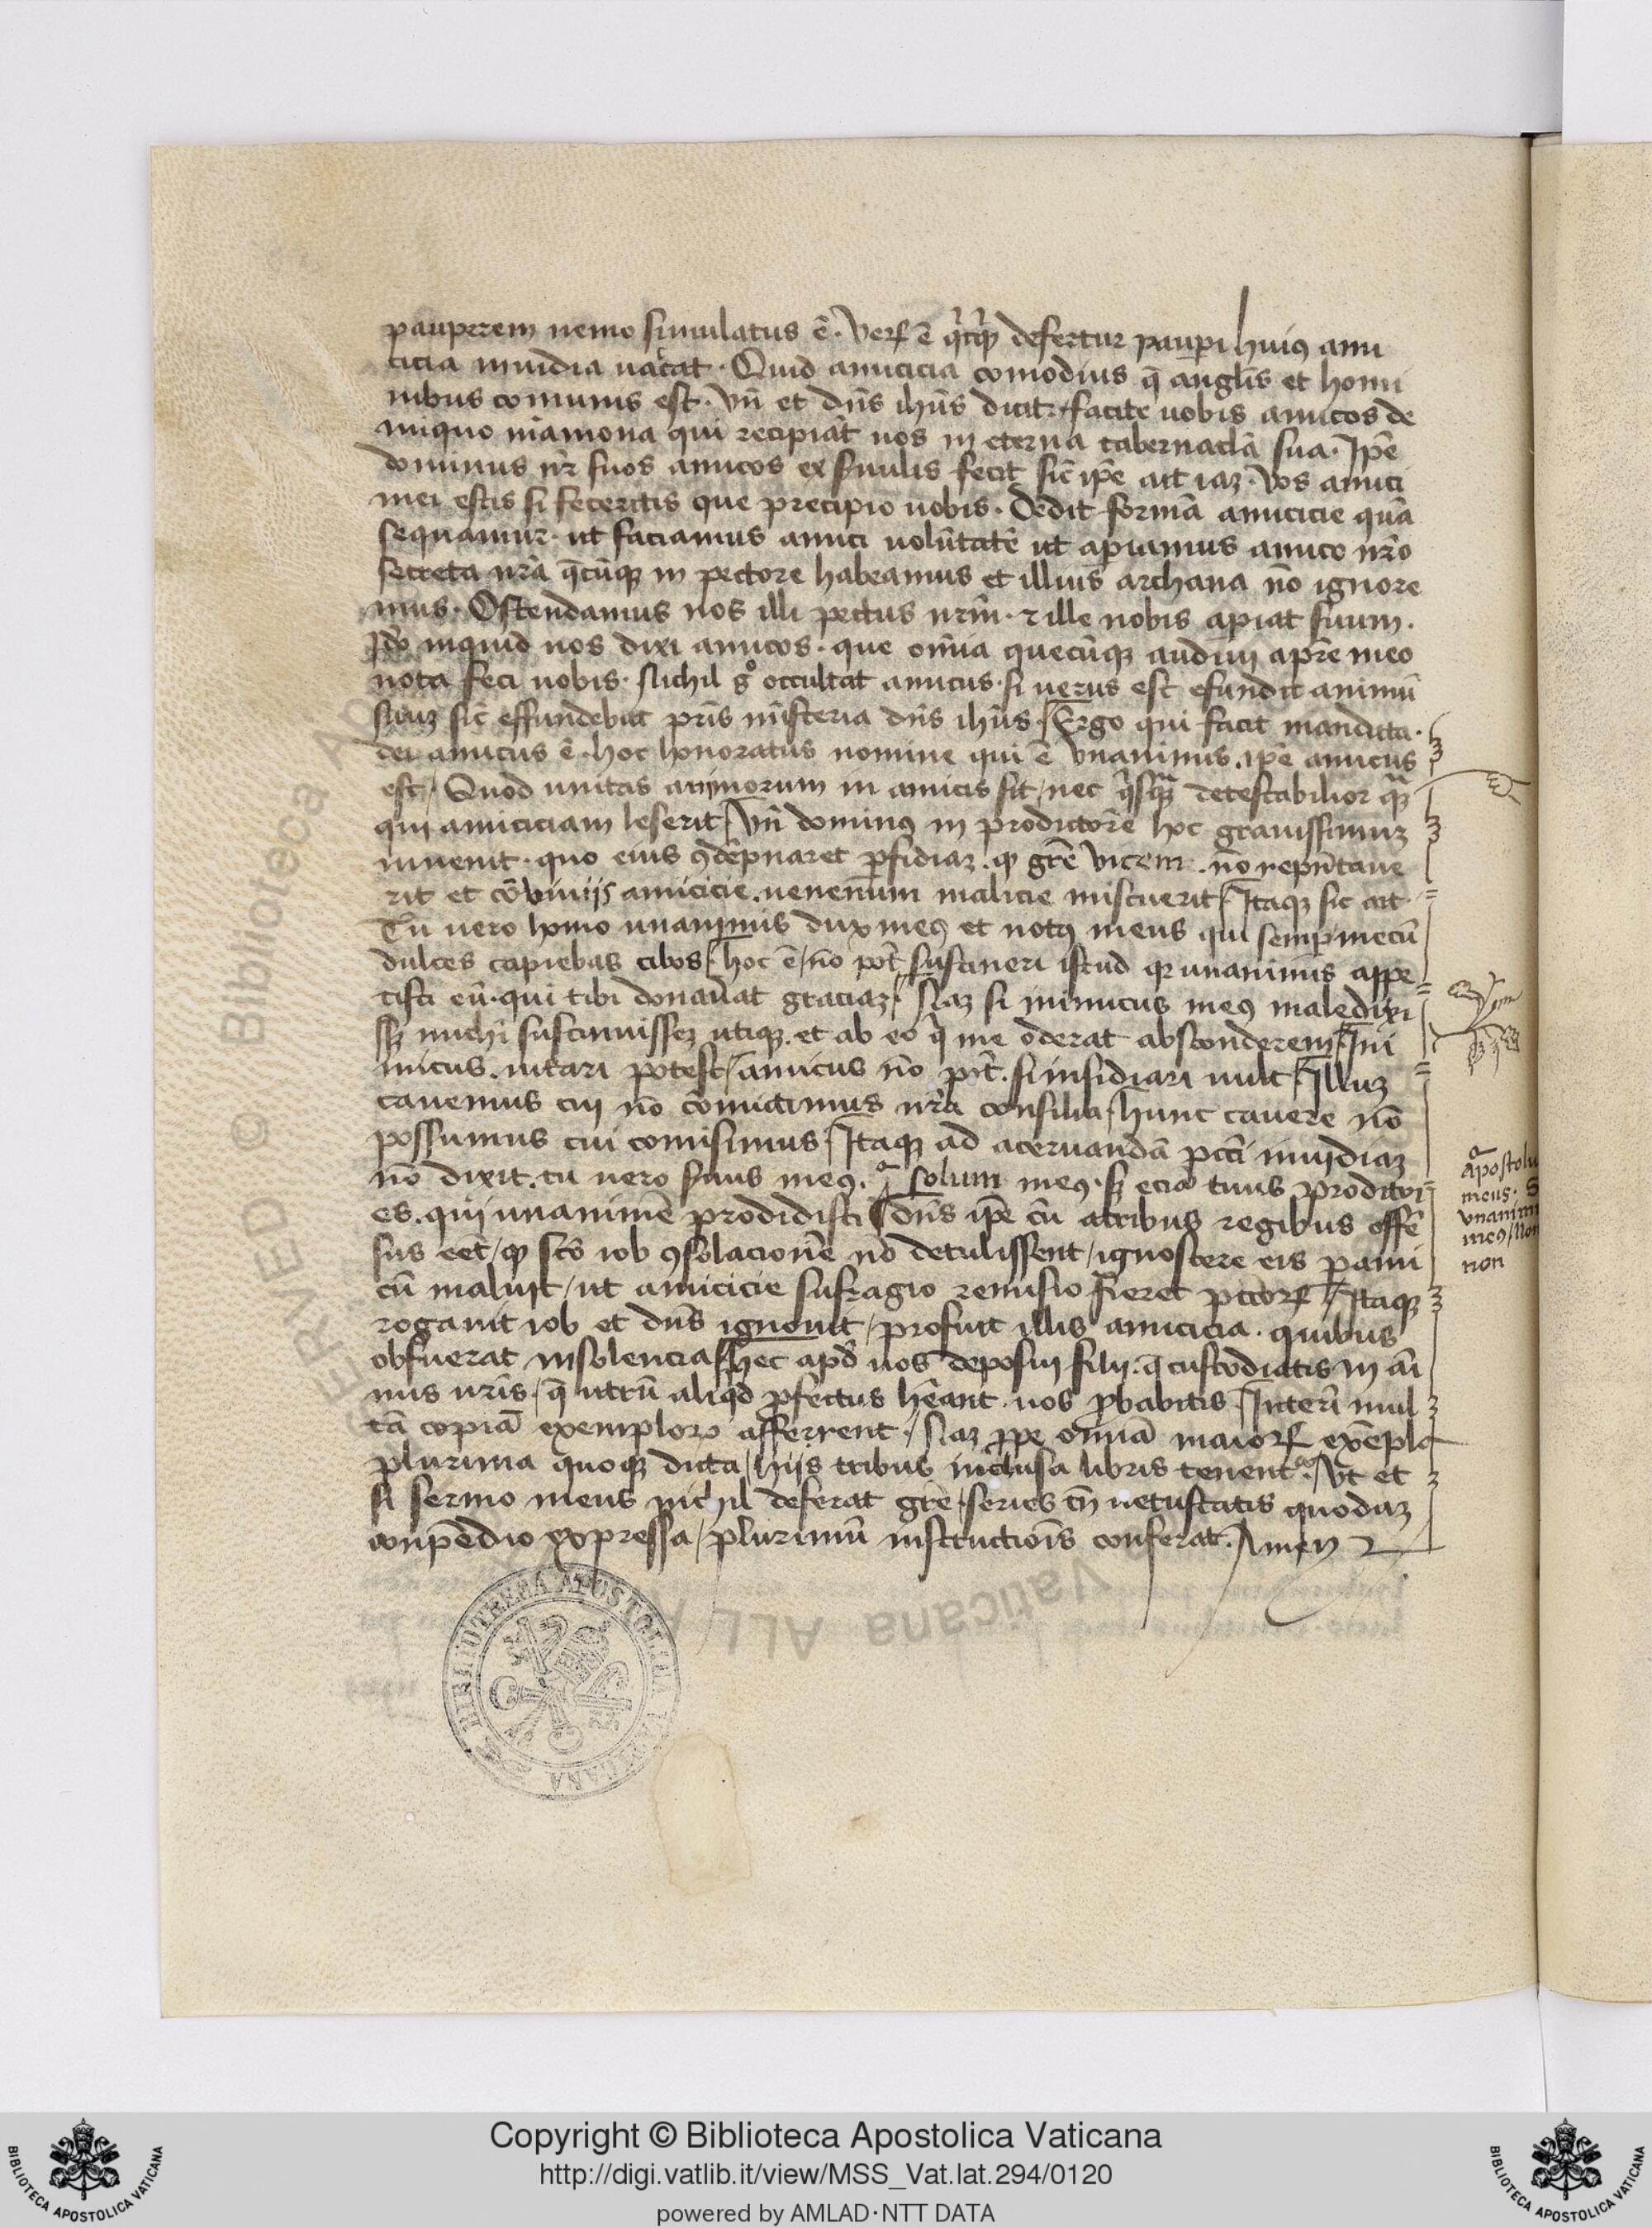 pauperem nemo simulatus ē. Verꝝ ē qͥcqͥd defertur pauꝑi huiꝰ ami
cicia inuidia uacat. Quid amicicia comodius q̄ angl̄is et homi
nibus comunis est. Vn̄ et dn̄s ih̄us dicit facite uobis amicos de
iniquo māmona qui recipiāt uos in eterna tabernacl̄a sua. Ip̄e
dominus nr̄ suos amicos ex ẜuulis fecit sic̄ ip̄e ait iaꝫ. Vos amici
mei estis si feceritis que precipio uobis. Dedit formā amicicie quā
sequamur. ut faciamus amici volūtatē ut apiamus amico nr̄o
secreta nr̄a q̄cūqꝫ in pectore habeamus et illius archana nō ignore
mus. Ostendamus nos illi pectus nr̄m. ⁊ ille nobis apiat suum.
Ido inquid uos dixi amicos. que om̄ia quecūqꝫ audiui apr̄e meo
nota feci uobis. Nichil gͦ occultat amicus. si uerus est efundit animū
suuꝫ sic̄ effundebat pr̄is misteria dn̄s ih̄us. Ergo qui facit mandata.
dei amicus ē. hoc honoratus nomine qui ē vnanimis. ip̄e amicus
est / Quod unitas animorum in amicis sit / nec qͥsqͣꝫ detestabilior qͣꝫ
qui amiciciam leserit / Vn̄ dominꝰ in proditore hoc grauissimuꝫ
inuenit. quo eius ꝯdēpnaret ꝑfidiaꝫ. qꝫ gr̄e vicem. nō repn̄taue
rit et cōviuijs amicicie. uenenum malicie miscuerit / Itaqꝫ sic ait.
Tu uero homo unanimis dux meꝰ et notꝰ meus qui semꝑ mecū
dulces capiebas cibos / hoc ē / nō pōt sustineri istud qꝛ unanimis appe
tisti eū. qui tibi donau̅at graciaꝫ / Naꝫ si inimicus meꝰ maledixi
sꝫ michi sustinuisseꝫ utiqꝫ. et ab eo qͥ me oderat absconderem / Ini
micus. uitari potest / amicus nō pōt. si insidiari uult / Illuꝫ
cauemus cui nō cōmictimus nr̄a consilia / hunc cauere nō
possumus cui comisimus / Itaqꝫ ad aceruandā pcc̄i inuidiaꝫ
nō dixit. tu uero ẜuus meꝰ. solum meꝰ. sꝫ ecia tuus proditor
es. qui unanimē prodidisti dn̄s ip̄e cū atribus regibus offē
sus eēt / qꝫ scō iob ꝯsolacionē nō detulissent / ignoscere eis ꝑ ami
cū maluit / ut amicicie sufragio remisio fieret pcc̄orꝝ / Itaqꝫ
rogauit iob et dn̄s ignouit / profuit illis amicicia. quibus
obfuerat insolencia / hec apd̄ uos deposui filij. q̄ custodiatis in ai̅
mis ur̄is / q̄ utrū aliqͥd ꝓfectus hēant. uos ꝓbabitis. Interī mul
tā copiā exemploꝝ afferrent / Naꝫ ꝓpe om̄iā maiorꝝ exēpla
plurima quoqꝫ dicta / hijs tribus inclusa libris tenent. / Vt et
si sermo meus nichil deferat gr̄e / series tn̄ uetustatis quodaꝫ
conpēdio expressa / plurimū instructiōis conferat. Amen
apostolu
meus. S
vnanimi
meꝰ / Non
non
Copyright © Biblioteca Apostolica Vaticana
http://digi.vatlib.it/view/MSS_Vat.lat.294/0120
powered by AMLAD·NTT DATA